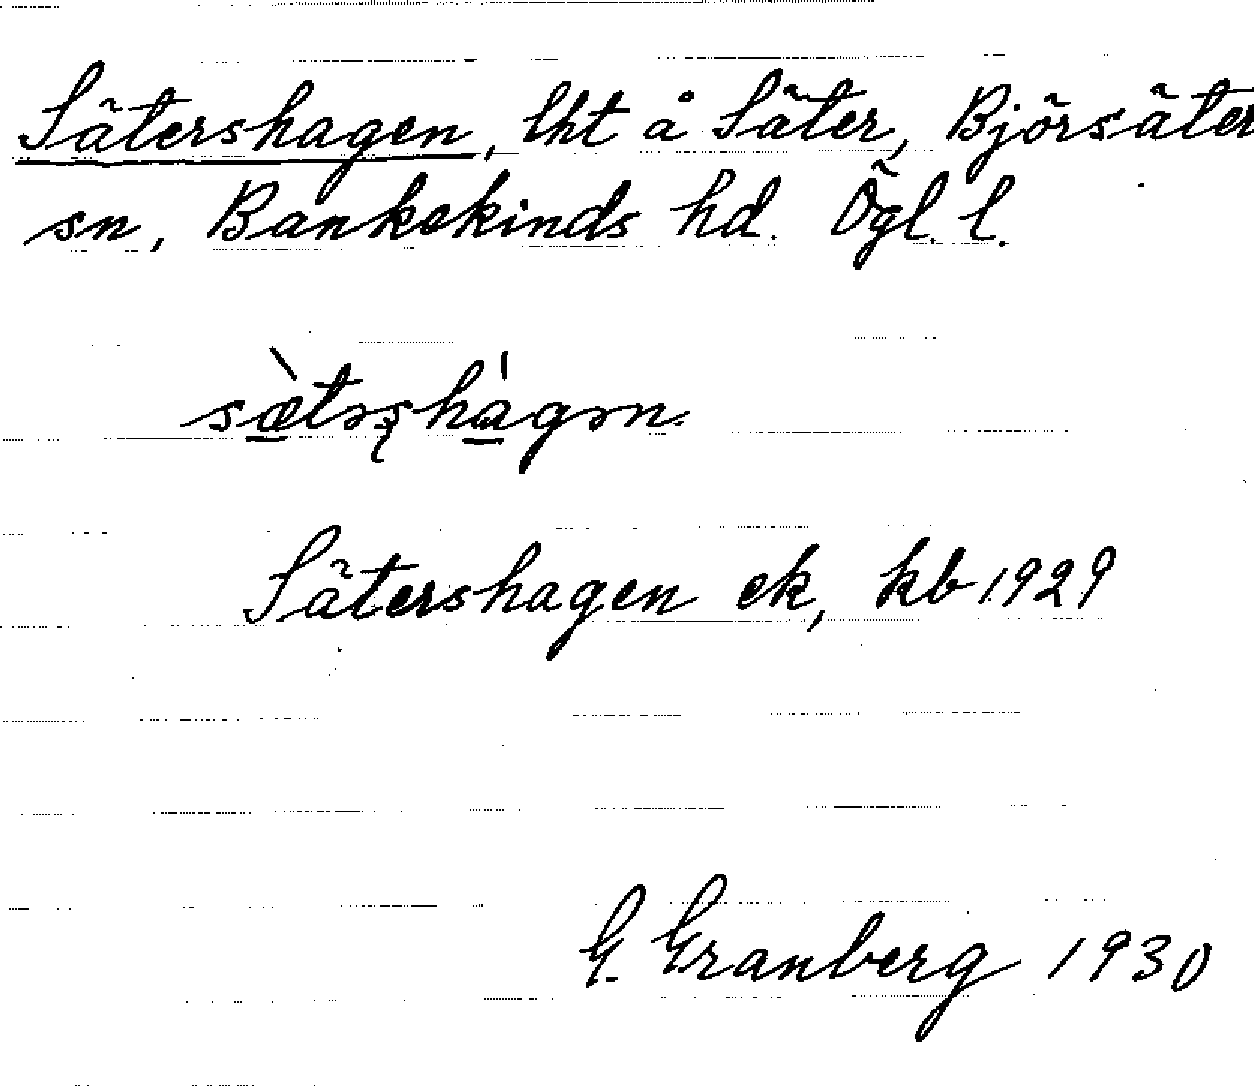 Sätershagen, lht å Säter, Björsäter
sn, Bankekinds hd. Ögl. l.
sæ̀təʂhágən.
Sätershagen ek, kb 1929
G. Granberg 1930